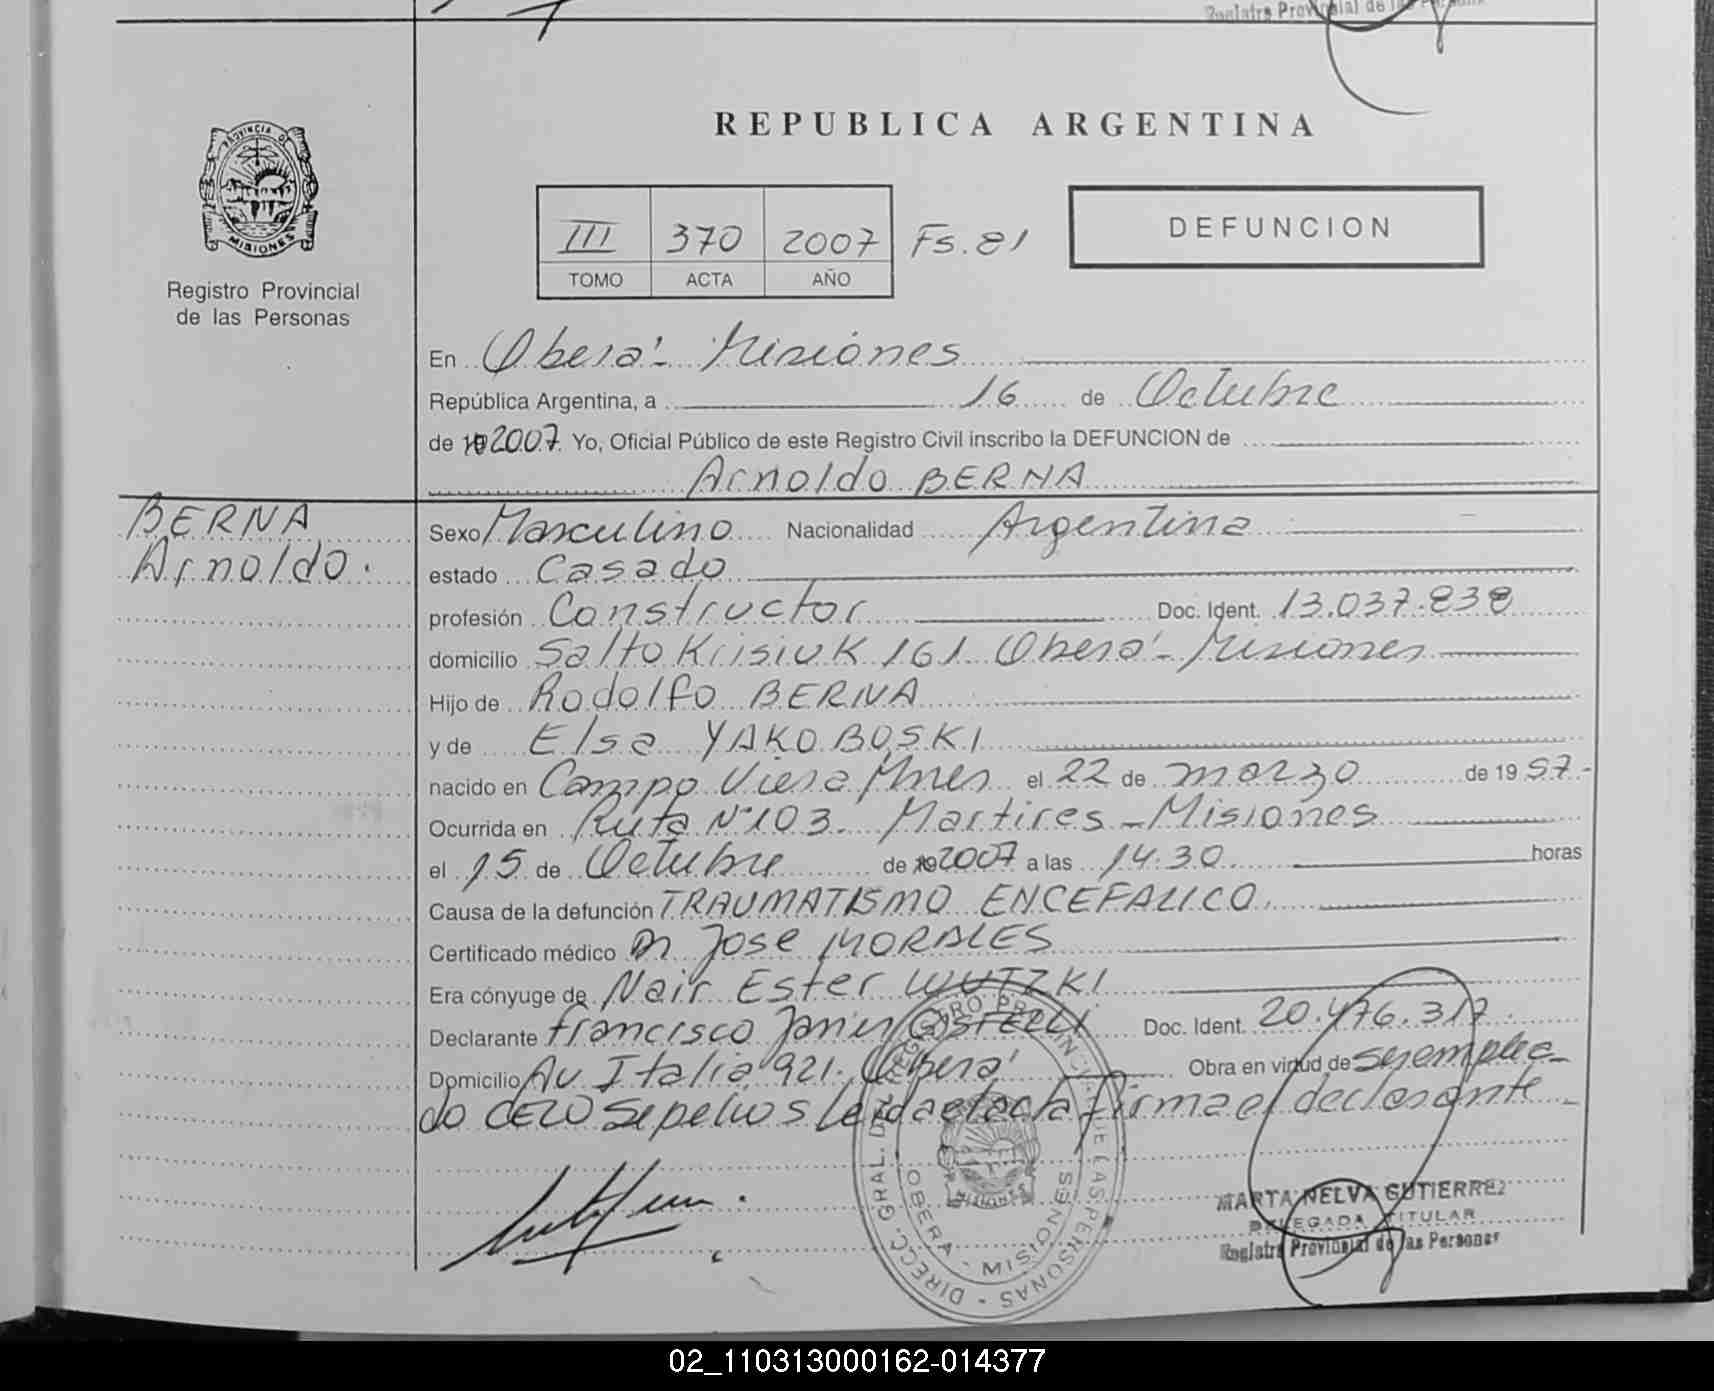 Registro Provincial de las Personas
REPUBLICA ARGENTINA
PROVINCIA DE
MISIONES
Registro Provincial
de las Personas
III 370 2007 Fs. 81
TOMO ACTA AÑO
DEFUNCION
En Oberá - Misiones
República Argentina, a 16 de Octubre
de 19 2007 Yo, Oficial Público de este Registro Civil inscribo la DEFUNCION de
Arnoldo BERNA
BERNA
Arnoldo.
Sexo Masculino Nacionalidad Argentina
estado Casado
profesión Constructor Doc. Ident. 13.037.838
domicilio Salto Krisiuk 161 Oberá - Misiones
Hijo de Rodolfo BERNA
y de Elsa YAKOBOSKI
nacido en Campo Viera Mnes el 22 de marzo de 1957.-
Ocurrida en Ruta Nº103. Martires - Misiones
el 15 de Octubre de 19 2007 a las 14.30. horas
Causa de la defunción TRAUMATISMO ENCEFALICO.
Certificado médico Dr Jose MORALES
Era cónyuge de Nair Ester WUTZKI
Declarante Francisco Javier Doc. Ident. 20.476.317.
Domicilio Av Italia 921. Oberá Obra en virtud de ser emplea-
do CELO Sepelios Leida el acta firma el declarante
DIRECC. GRAL. DEL REGISTRO PROVINCIAL DE LAS PERSONAS -
OBERA - MISIONES
MISIONES
MARTA NELVA GUTIERREZ
DELEGADA TITULAR
Registro Provincial de las Personas
02_110313000162-014377